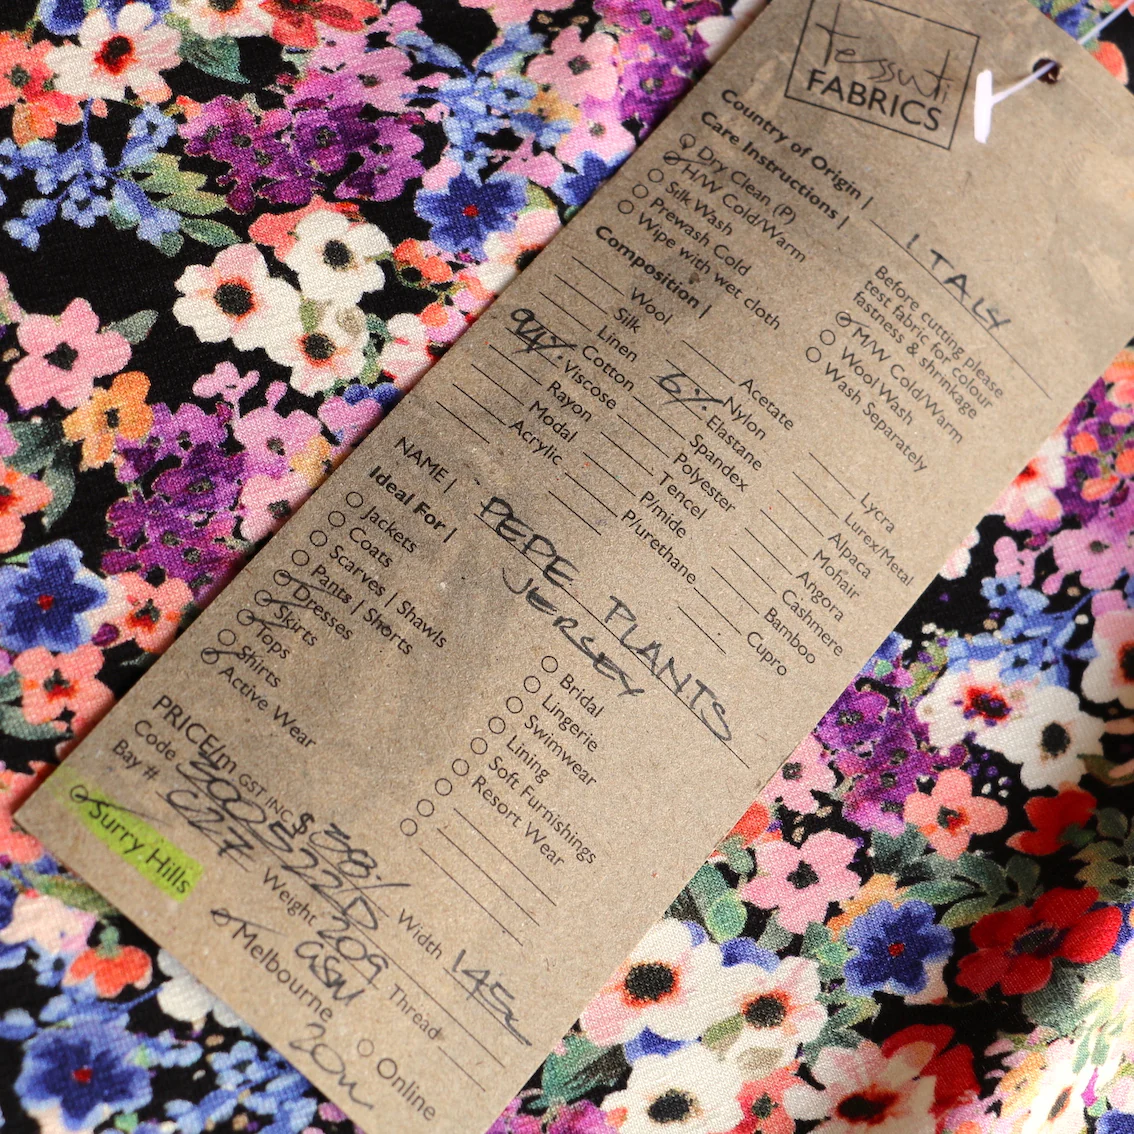 Tessuti
FABRICS
Country of Origin | ITALY
Care Instructions |
Before cutting please
test fabric for colour
fastness & shrinkage
Dry Clean (P)
H/W Cold/Warm
Silk Wash
Prewash Cold
Wipe with wet cloth
M/W Cold/Warm
Wool Wash
Wash Separately
Composition |
Wool
Silk
Linen
Cotton
94% Viscose
Rayon
Modal
Acrylic
Acetate
Nylon
6% Elastane
Spandex
Polyester
Tencel
P/mide
P/urethane
Lycra
Lurex/Metal
Alpaca
Mohair
Angora
Cashmere
Bamboo
Cupro
NAME | PEPE PLANTS
JERSEY
Ideal For |
Jackets
Coats
Scarves | Shawls
Pants | Shorts
Dresses
Skirts
Tops
Shirts
Active Wear
Bridal
Lingerie
Swimwear
Lining
Soft Furnishings
Resort Wear
PRICE/m GST INC $ 38.-/ Width 145
Code 300522D
Weight 209 GSM Thread
Bay # C27
Surry Hills
Melbourne
Online